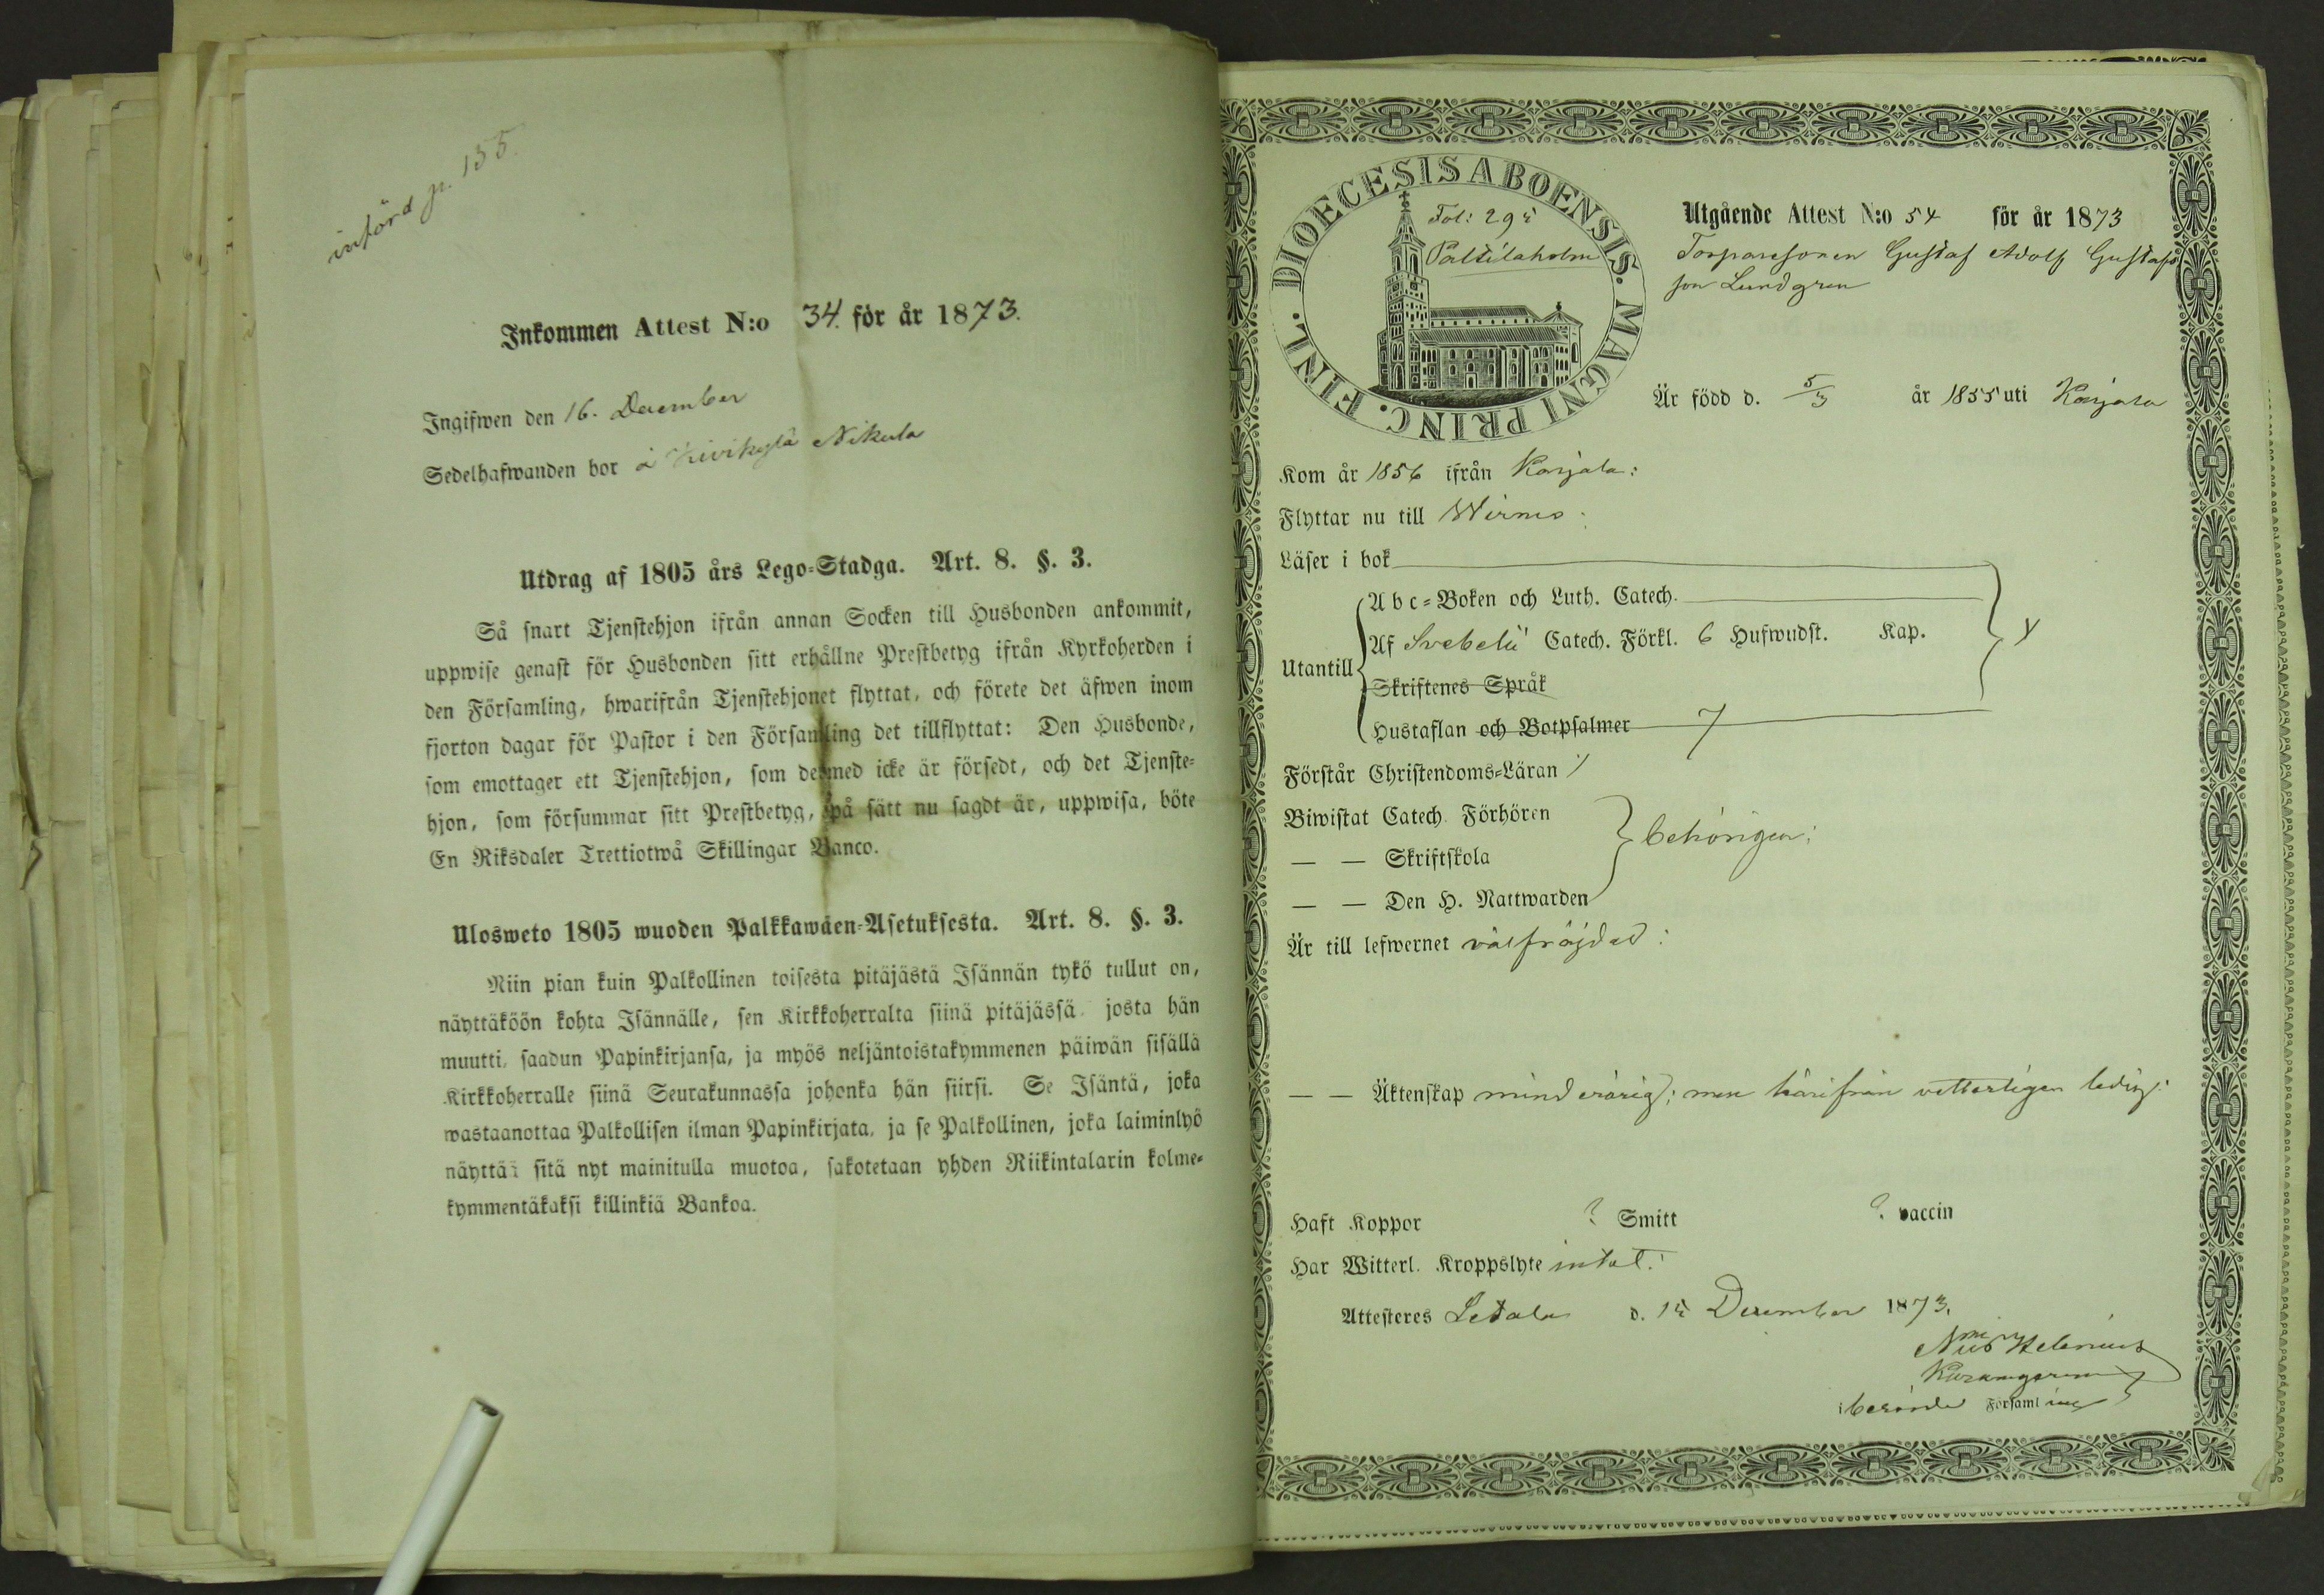 införd p. 135.
Inkommen Attest N:o 34. för år 1873.
Ingifwen den 16. December
Sedelhafwanden bor å Kivikylä Nikula
Utdrag af 1805 års Lego-Stadga. Art. 8. §. 3.
Så snart Tjenstehjon ifrån annan Socken till Husbonden ankommit,
uppwise genast för Husbonden sitt erhållne Prestbetyg ifrån Kyrkoherden i
den Församling, hwarifrån Tjenstehjonet flyttat, och förete det äfwen inom
fjorton dagar för Pastor i den Församling det tillflyttat: Den Husbonde,
som emottager ett Tjenstehjon, som dermed icke är försedt, och det Tjenste-
hjon, som försummar sitt Prestbetyg, på sätt nu sagdt är, uppwisa, böte
En Riksdaler Trettiotwå Skillingar Banco.
Ulosweto 1805 wuoden Palkkawäen-Asetuksesta. Art. 8. §. 3.
Niin pian kuin Palkollinen toisesta pitäjästä Isännän tykö tullut on,
näyttäköön kohta Isännälle, sen Kirkkoherralta siinä pitäjässä josta hän
muutti, saadun Papinkirjansa, ja myös neljäntoistakymmenen päiwän sisällä
Kirkkoherralle siinä Seurakunnassa johonka hän siirsi. Se Isäntä, joka
wastaanottaa Palkollisen ilman Papinkirjata, ja se Palkollinen, joka laiminlyö
näyttää sitä nyt mainitulla muotoa, sakotetaan yhden Riikintalarin kolme-
kymmentäkaksi killinkiä Bankoa.
DIOECESIS ABOENSIS. MAGNI PRINC. FINL.
Fol: 295
Paltilaholm
Utgående Attest N:o 54 för år 1873
Torparesonen Gustaf Adolf Gustafs
son Lundgren
Är född d. 5/3 år 1855 uti Karjala
Kom år 1856 ifrån Karjala:
Flyttar nu till Wirmo:
Läser i bok
Abc-Boken och Luth. Catech.
Utantill
Af Svebelii Catech. Förkl. 6 Hufwudst. Kap.
Skriftenes Språk
Hustaflan och Botpsalmer
Förstår Christendoms-Läran
Biwistat Catech. Förhören
— — Skriftskola behörigen:
— — Den H. Nattwarden
Är till lefwernet välfräjdad:
— — Äktenskap minderårig; men härifrån vetterligen ledig:
Haft Koppor ? Smitt ? vaccin
Har Witterl. Kroppslyte intet:
Attesteres Letala d. 15 December 1873.
Helenius
i berörde Församling